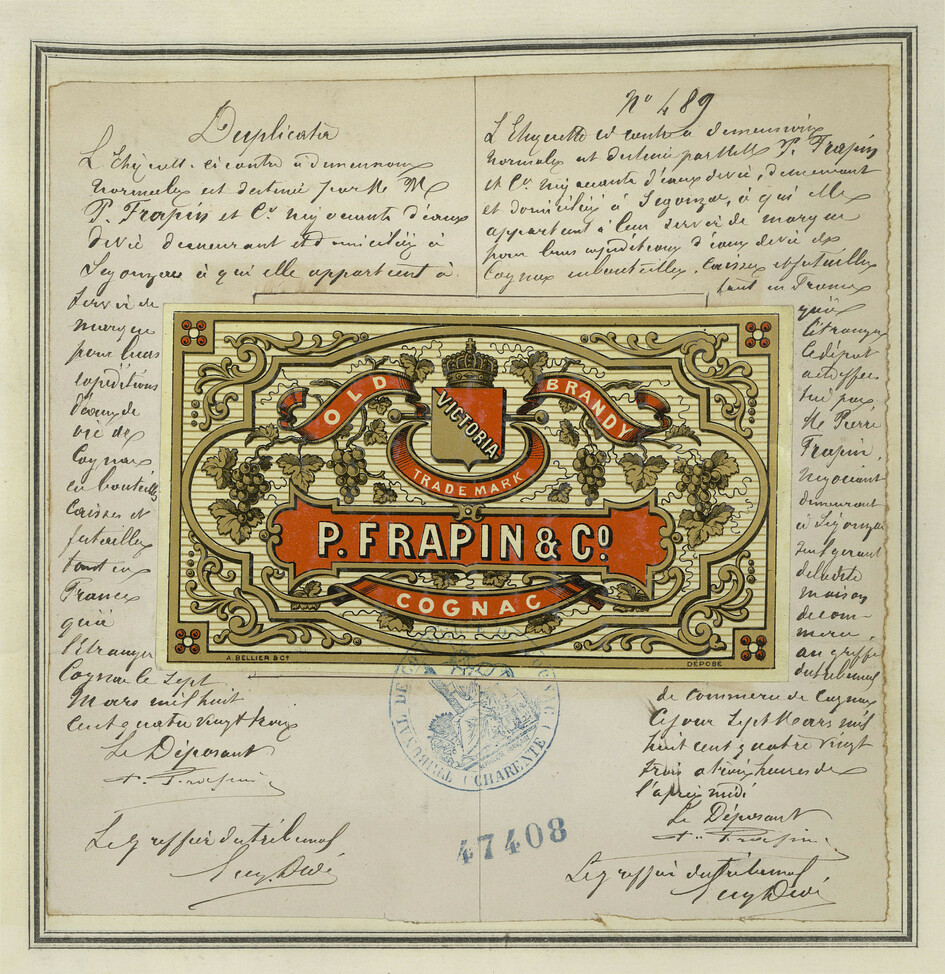 Duplicata
L'Etiquette ci contre à dimensions
normales est destinée par MM
P. Frapin et Cie négociants d'eaux
de vie demeurant et domiciliés à
Segonzac à qui elle appartient à
servir de
marque
pour leurs
expéditions
d'eaux de
vie de
Cognac
en bouteilles
caisses et
futailles
tant en
France
qu'à
l'étranger
Cognac le sept
Mars mil huit
cent quatre vingt trois
Le Déposant
P. Frapin
Le greffier du tribunal
No 489
L'Etiquette ci contre à dimensions
normales est destinée par MM P. Frapin
et Cie négociants d'eaux de vie, demeurant
et domiciliés à Segonzac, à qui elle
appartient à leur servir de marque
pour leurs expéditions d'eaux de vie de
Cognac en bouteilles, caisses et futailles
tant en France
qu'à
l'étranger
Le dépôt
a été effec
tué par
Mr Pierre
Frapin,
négociant
demeurant
à Segonzac
seul gérant
de la dite
maison
de com-
merce,
au greffe
du tribunal
de commerce de Cognac
ce jour sept Mars mil
huit cent quatre vingt
trois à trois heures de
l'après midi
Le Déposant
P. Frapin
Le greffier du tribunal
OLD BRANDY
VICTORIA
TRADE MARK
P. FRAPIN & Co
COGNAC
A. BELLIER & Cie
DÉPOSÉ
TRIBUNAL DE COGNAC (CHARENTE)
47408